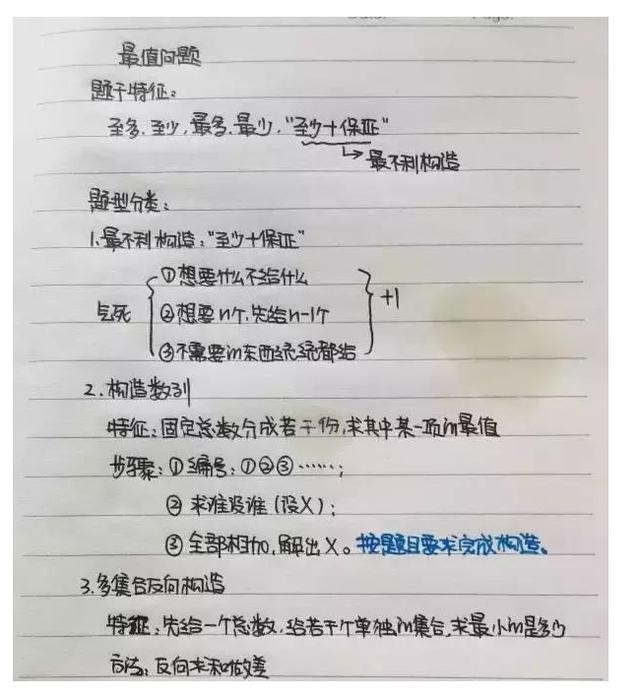 最值问题
题干特征：
至多、至少，最多、最少，“至少+保证”
↳最不利构造
题型分类：
1.最不利构造：“至少+保证”
①想要什么不给什么
气死 ②想要n个，先给n-1个 +1
③不需要的东西统统都给
2.构造数列
特征：固定总数分成若干份，求其中某一项的最值
步骤：①编号：①②③……；
②求谁设谁（设X）；
③全部相加，解出X。按题目要求完成构造。
3.多集合反向构造
特征：先给一个总数，给若干个单独的集合，求最小的是多少
方法：反向求和做差